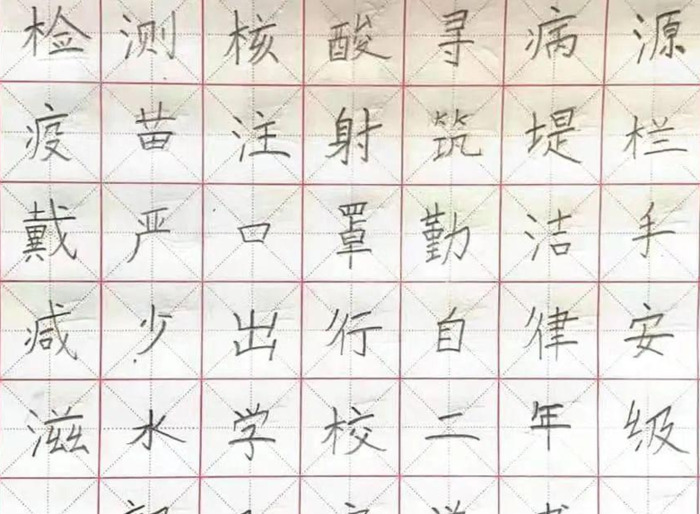 检测核酸寻病源
疫苗注射筑堤栏
戴严口罩勤洁手
减少出行自律安
滋水学校二年级